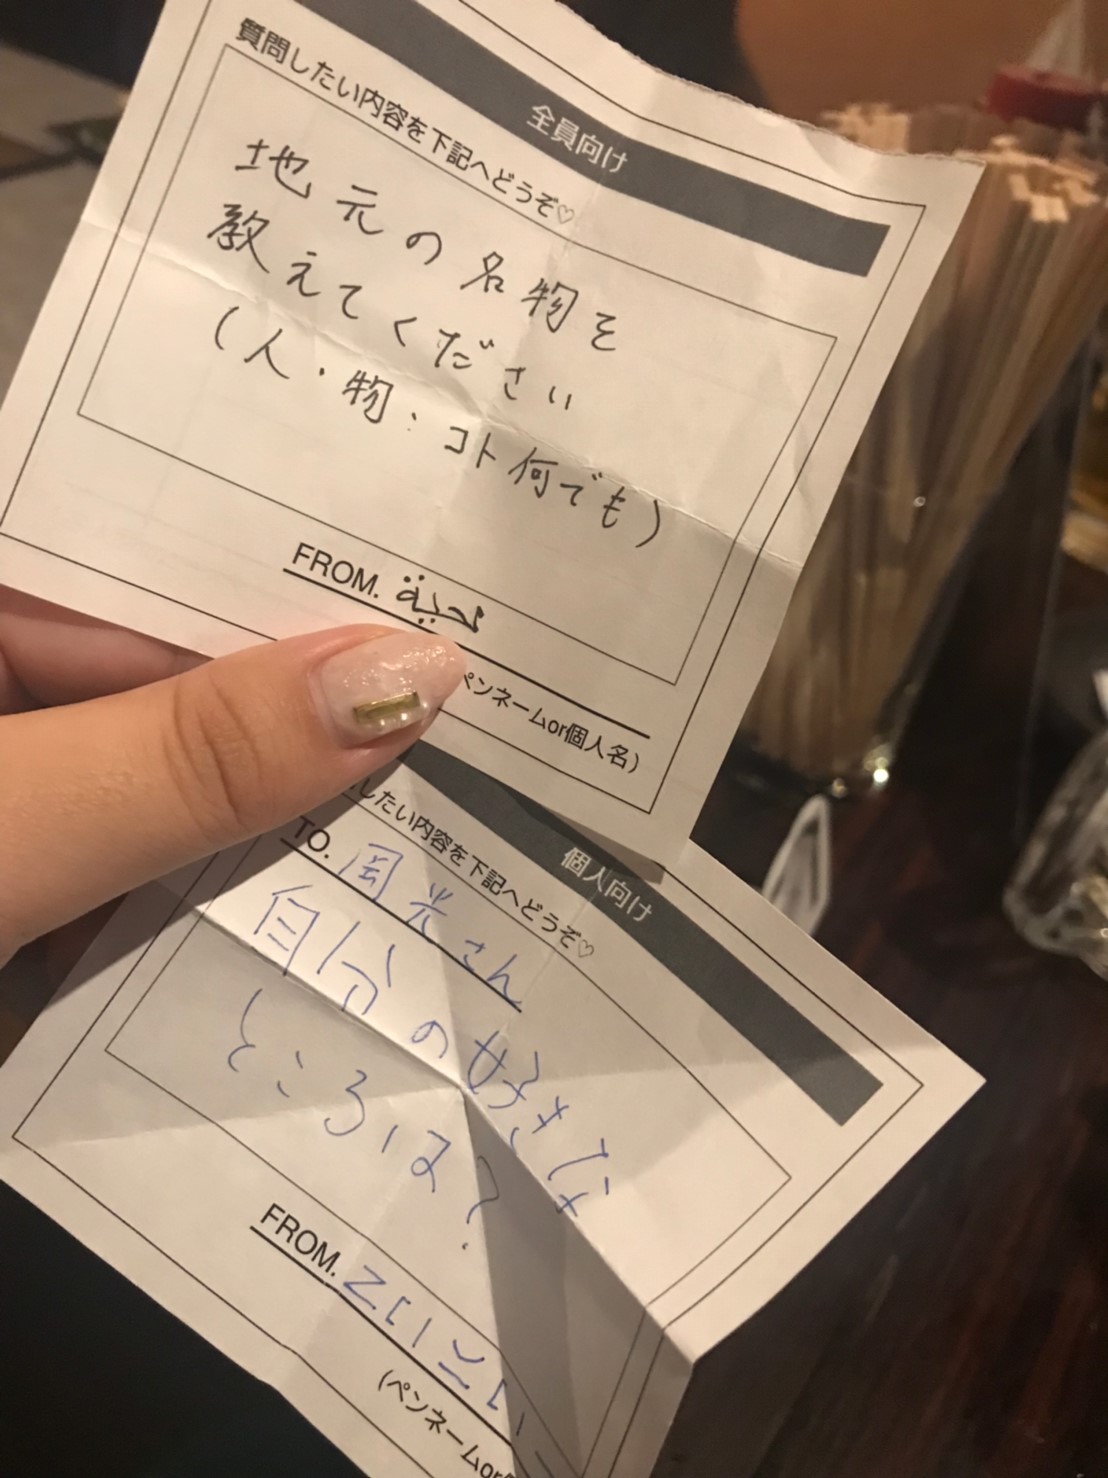 全員向け
質問したい内容を下記へどうぞ♡
地元の名物を
教えてください
(人・物・コト何でも)
FROM.
ペンネームor個人名)
個人向け
したい内容を下記へどうぞ♡
TO. 岡光さん
自分の好きな
ところは?
FROM.
(ペンネームor